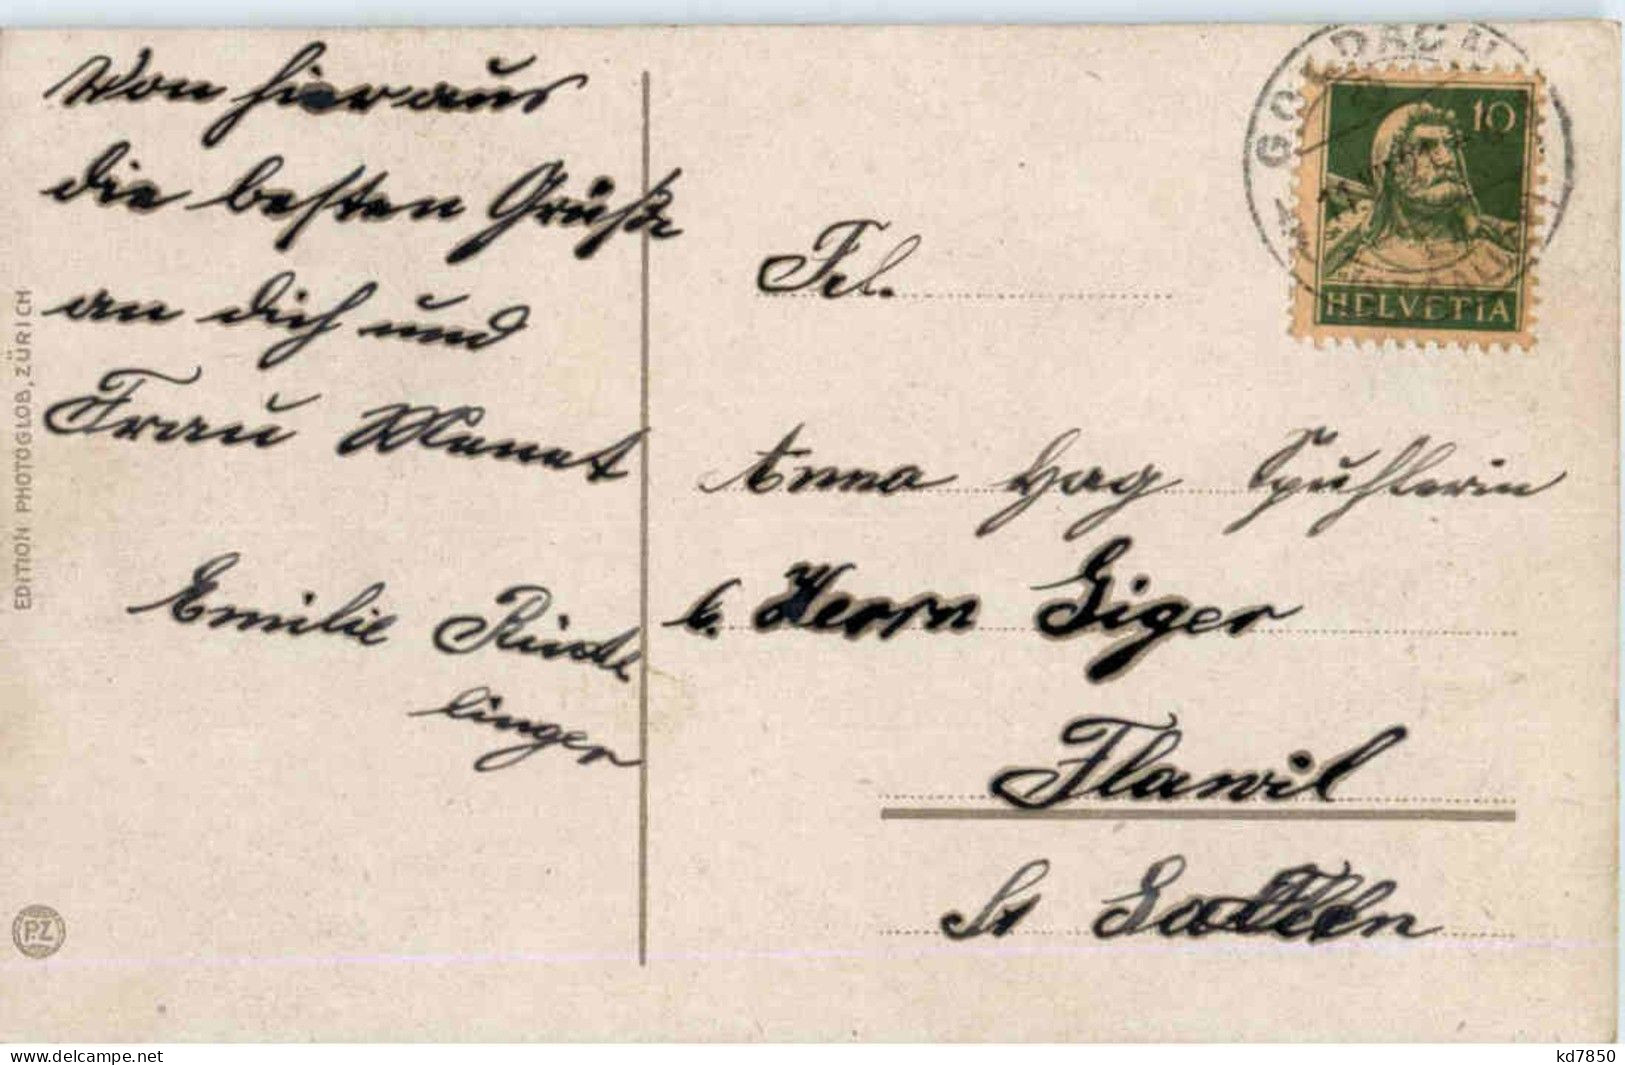 Von hier aus
die besten Grüße
an dich und
Frau Manet
Emilie Rüst
linger
EDITION PHOTOGLOB, ZÜRICH
P.Z
GOLDACH
10
HELVETIA
Frl.
Anna Hag
b. Herrn Giger
Flawil
St Gallen
www.delcampe.net
kd7850